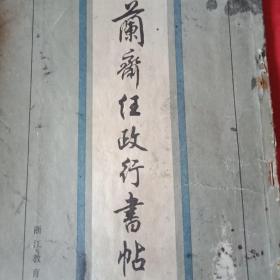 蘭齋任政行書帖
浙江教育